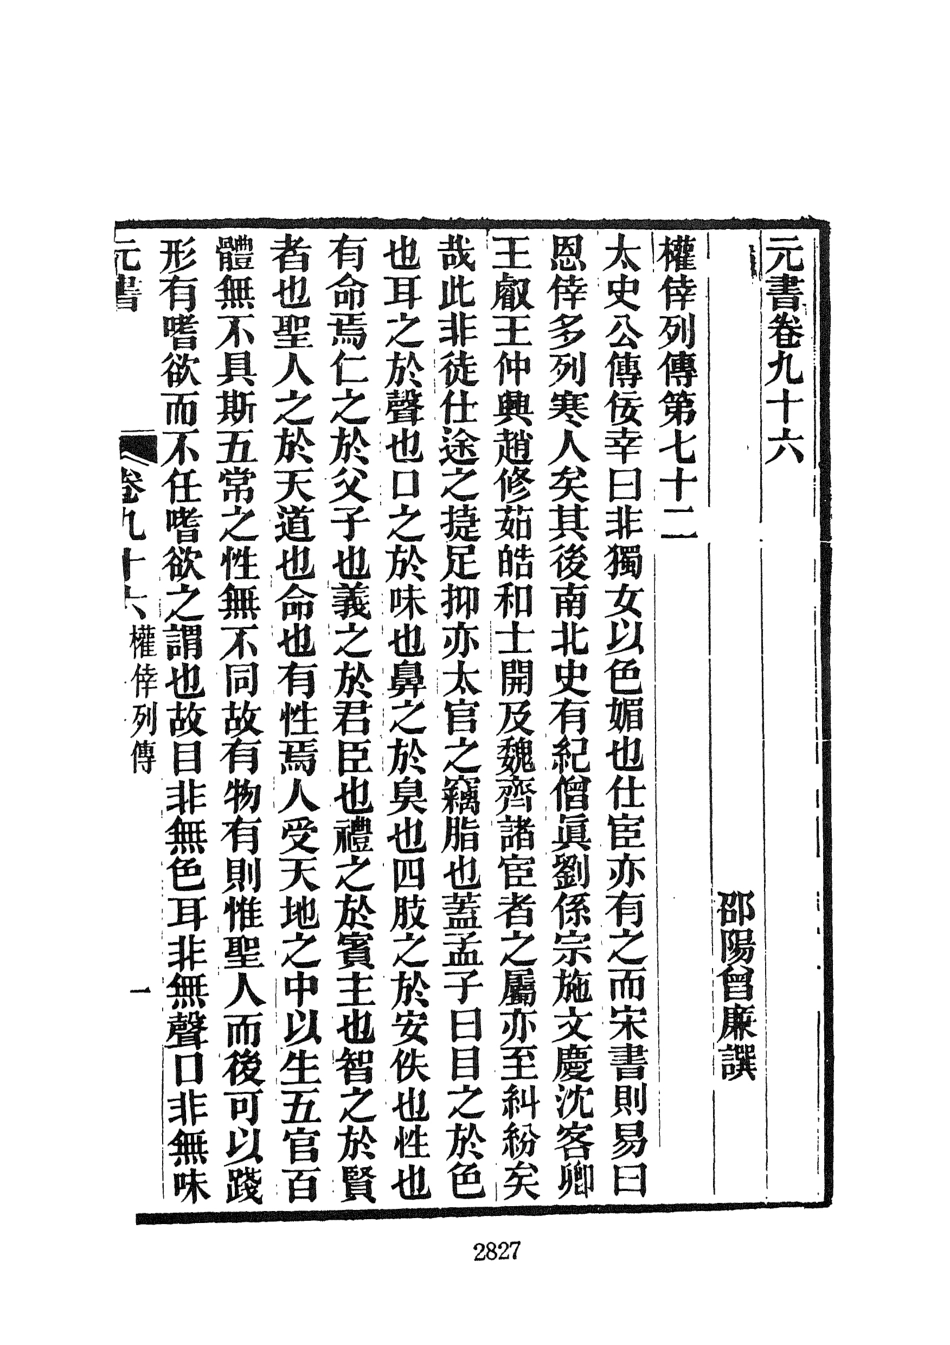 元書卷九十六
邵陽曾廉譔
權倖列傳第七十二
太史公傳佞幸曰非獨女以色媚也仕宦亦有之而宋書則易曰
恩倖多列寒人矣其後南北史有紀僧眞劉係宗施文慶沈客卿
王叡王仲興趙修茹皓和士開及魏齊諸宦者之屬亦至糾紛矣
哉此非徒仕途之捷足抑亦太官之竊脂也蓋孟子曰目之於色
也耳之於聲也口之於味也鼻之於臭也四肢之於安佚也性也
有命焉仁之於父子也義之於君臣也禮之於賓主也智之於賢
者也聖人之於天道也命也有性焉人受天地之中以生五官百
體無不具斯五常之性無不同故有物有則惟聖人而後可以踐
形有嗜欲而不任嗜欲之謂也故目非無色耳非無聲口非無味
元書 卷九十六 權倖列傳 一
2827